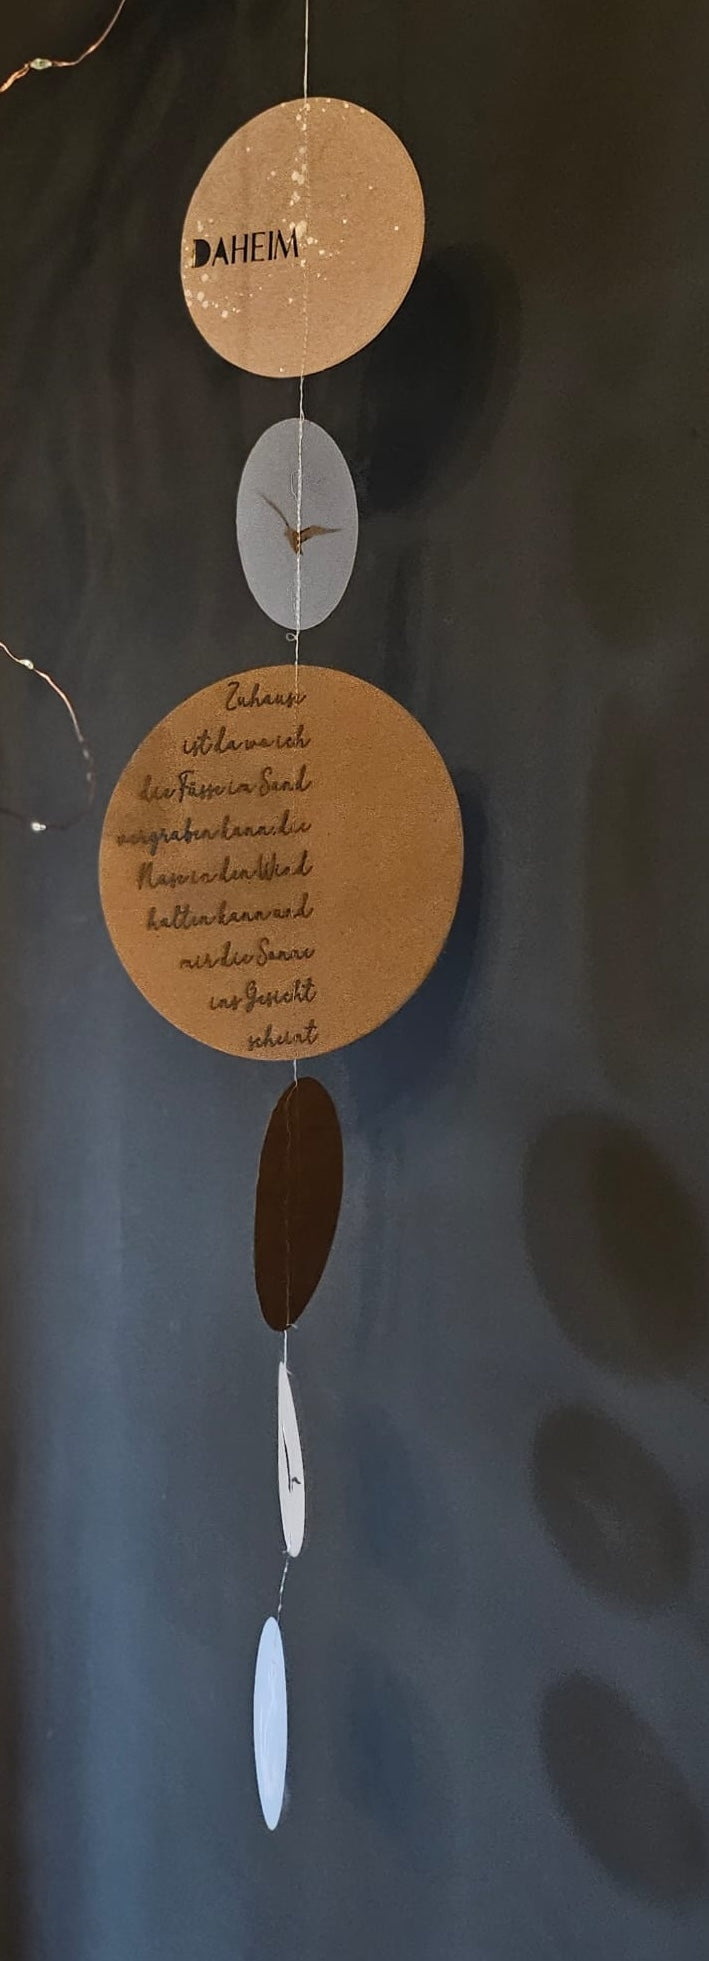 DAHEIM
Zuhause
ist da wo ich
die Füsse im Sand
vergraben kann, die
Nase in den Wind
halten kann und
mir die Sonne
ins Gesicht
scheint